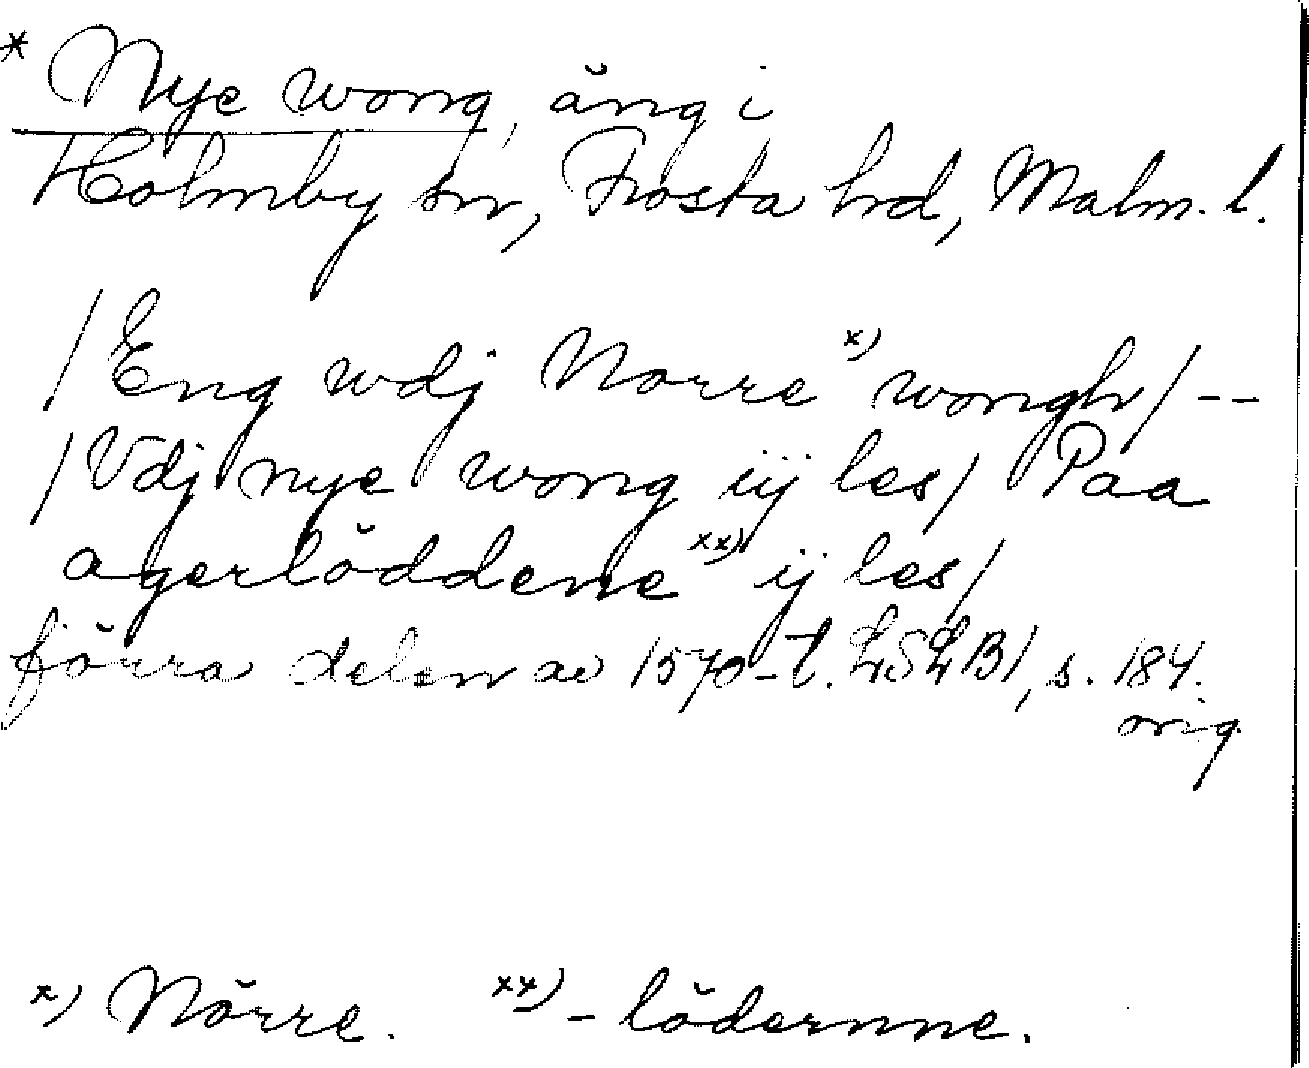 * Nye wong, äng i
Holmby sn, Frosta hd, Malm. l.
/Eng wdj Norre x) wongh/--
/Vdj nye wong iij les/ Paa
agerlöddene xx) ij les/
förra delen av 1570-t. LSLB1, s. 184.
orig.
x) Nörre. xx) -lödernne.